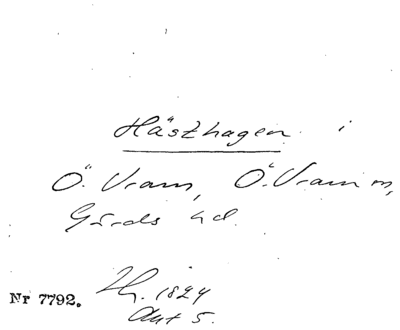 Hästhagen i
Ö. Vram, Ö. Vram m,
Gärds hd.
Nr 7792. 1824
Akt 5.